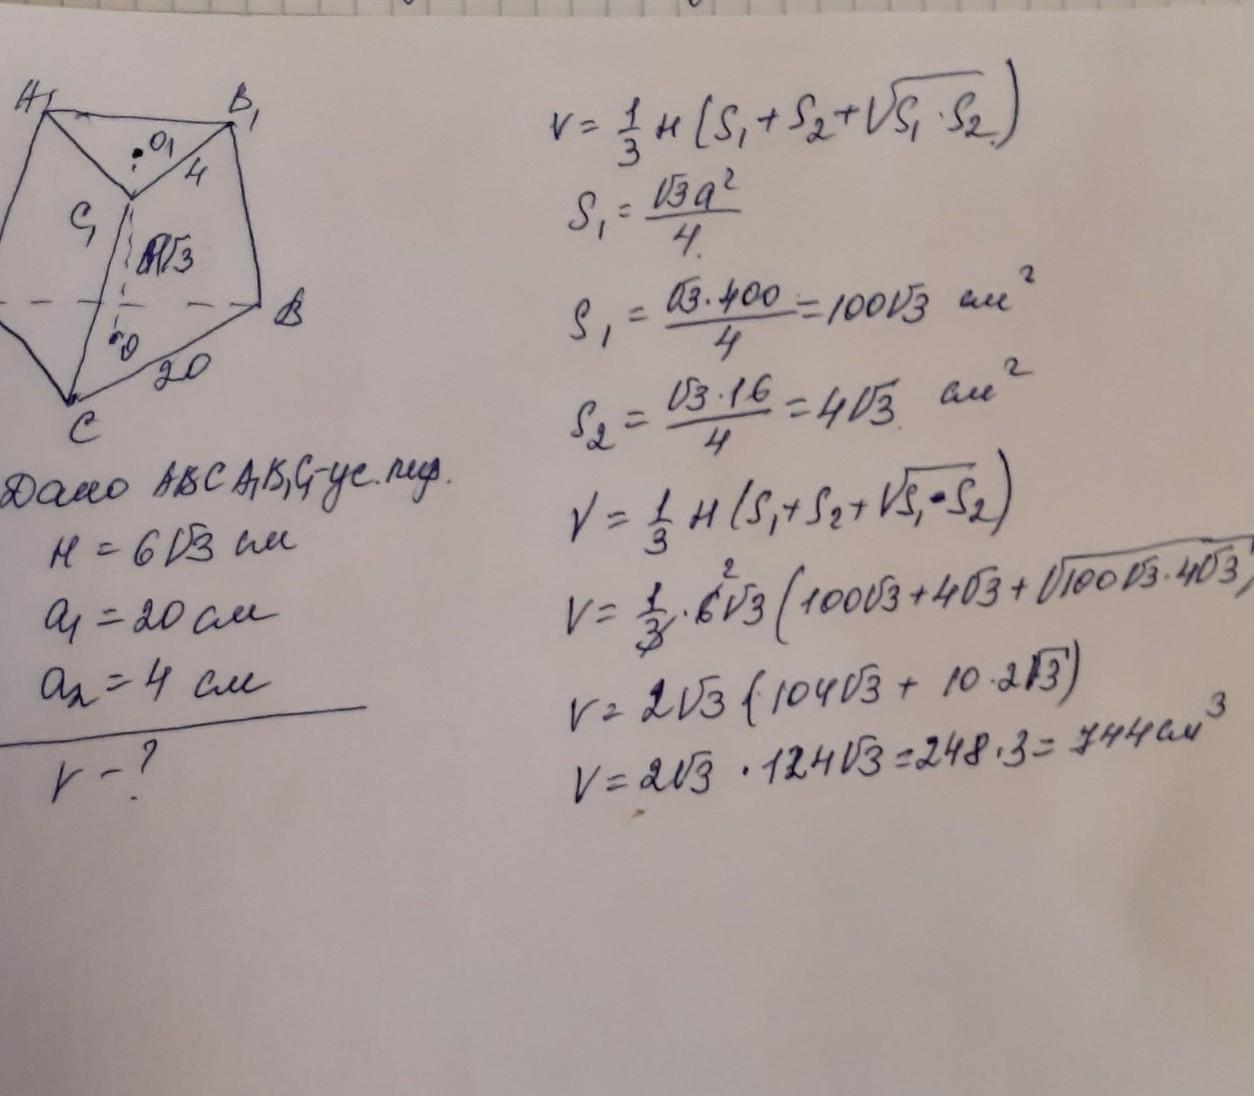 A₁
B₁
O₁
4
C₁
√3
B
O
20
C
Дано ABCA₁B₁C₁-ус. пир.
H = 6√3 см
a₁ = 20 см
a₂ = 4 см
V - ?
V = 1/3 H (S₁ + S₂ + √(S₁ · S₂))
S₁ = √3a²/4
S₁ = √3·400/4 = 100√3 см²
S₂ = √3·16/4 = 4√3 см²
V = 1/3 H (S₁ + S₂ + √(S₁·S₂))
V = 1/3 · 6 2 √3 (100√3 + 4√3 + √(100√3·4√3))
V = 2√3 (104√3 + 10·2√3)
V = 2√3 · 124√3 = 248·3 = 744 см³